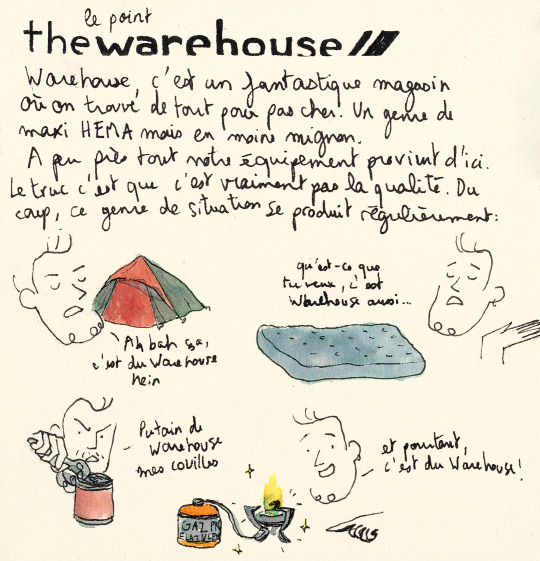 le point
the warehouse
Warehouse, c'est un fantastique magasin
où on trouve de tout pour pas cher. Un genre de
maxi HEMA mais en moins mignon.
A peu près tout notre équipement provient d'ici.
Le truc c'est que c'est vraiment pas la qualité. Du
coup, ce genre de situation se produit régulièrement:
Ah bah ça,
c'est du Warehouse
hein
qu'est-ce que
tu veux, c'est
Warehouse aussi...
Putain de
Warehouse
mes couilles
et pourtant,
c'est du Warehouse!
GAZ